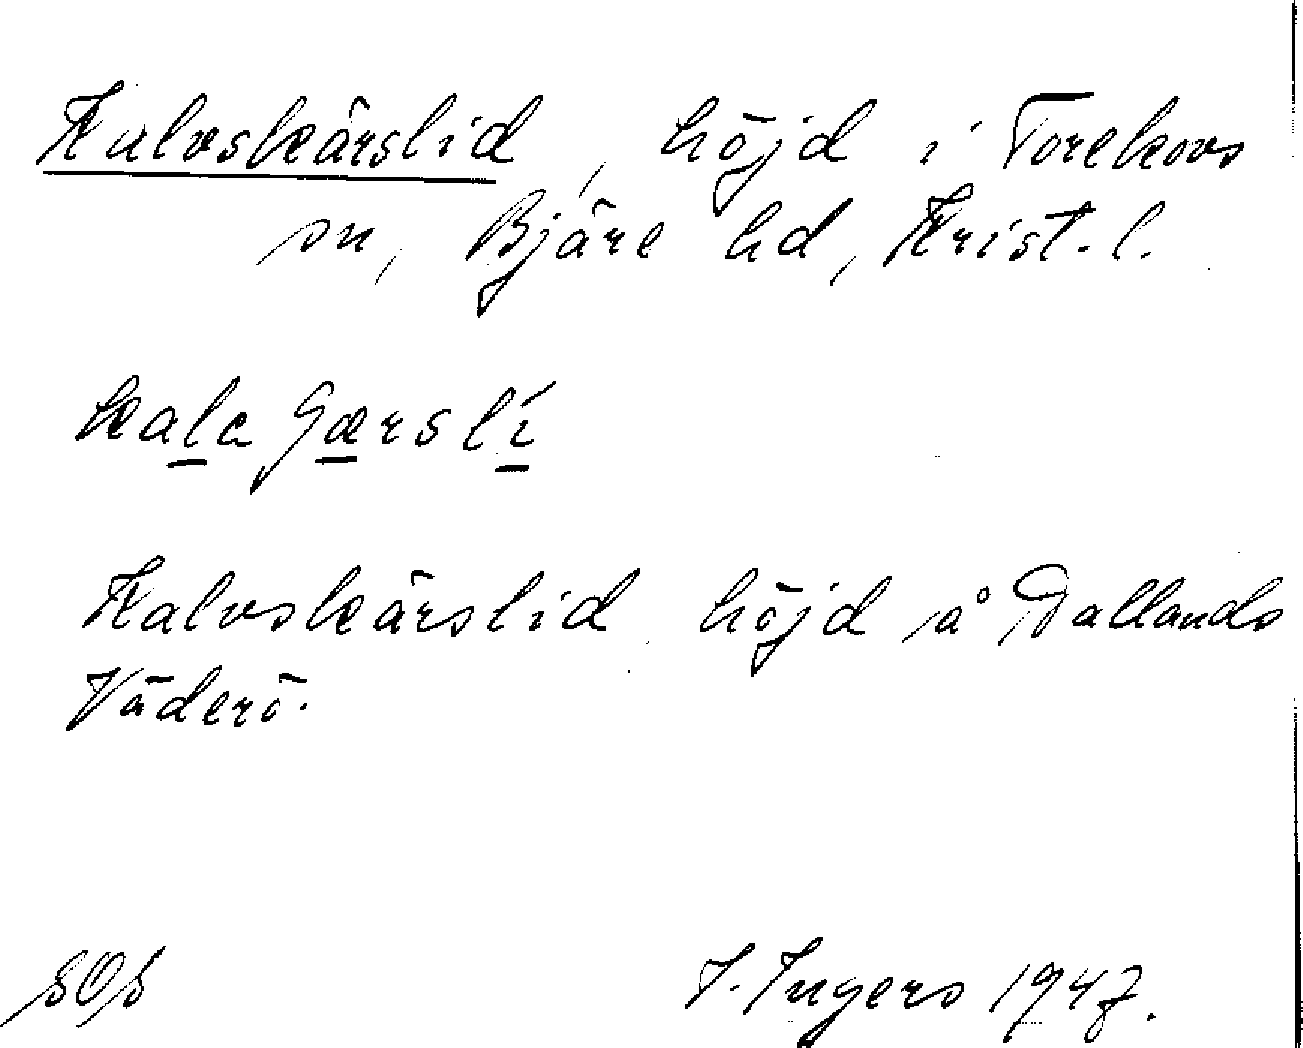 Kalvskärslid, höjd i Torekovs
sn, Bjäre hd, Krist. l.
kalagærslí
Kalvskärslid höjd på Hallands
Väderö.
SOS
I. Ingers 1947.